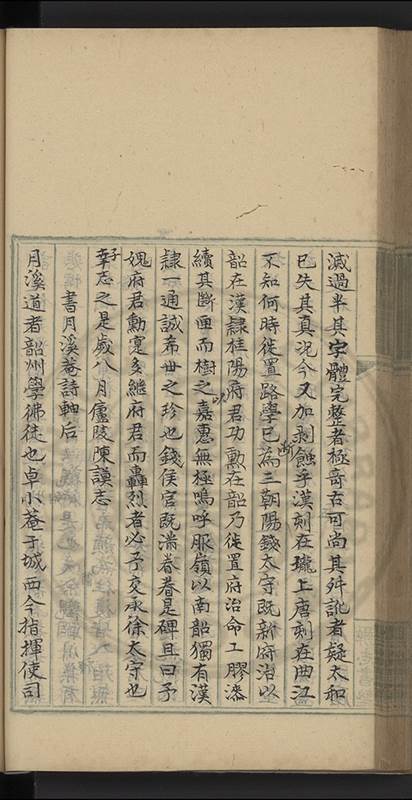 減過半其字體完整者極奇古可尚其舛訛者疑太和
已失其真况今又加剥蝕乎漢刻在瀧上唐刻在曲江
不知何時徙置路學已為三斷朝陽錢太守既新府治以
韶在漢隸桂陽府君功勲在韶乃徙置府治命工膠漆
續其斷匣而樹之嘉惠無極嗚呼服嶺以南韶獨有漢
隸一通誠希世之珍也錢侯官既滿眷眷是碑且曰予
媿府君勳寔多繼府君而轟烈者必予交承徐太守也
子幸志之是歲八月廬陵陳謨志
書月溪菴詩軸后
月溪道者韶州學佛徒也卓小菴于城西今指揮使司